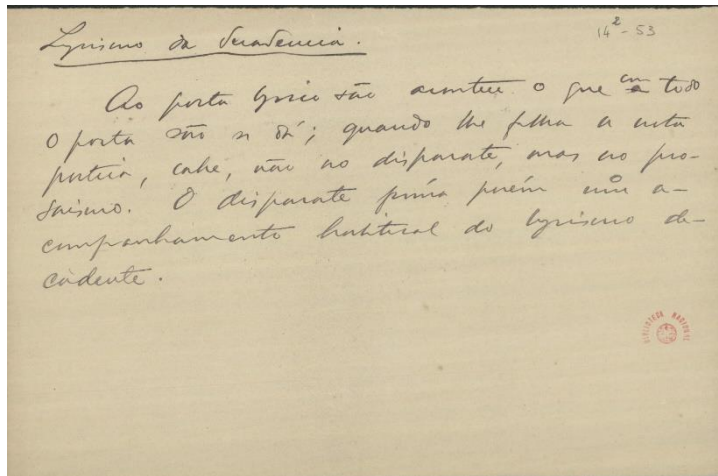 Lyrismo da decadencia.
14² - 53
Ao poeta lyrico são acontece o que em todo
o poeta são se dá; quando lhe falha a nota
poetica, cahe, não no disparate, mas no pro-
saismo. O disparate porém um a-
companhamento habitual do lyrismo de-
cadente.
BIBLIOTECA NACIONAL